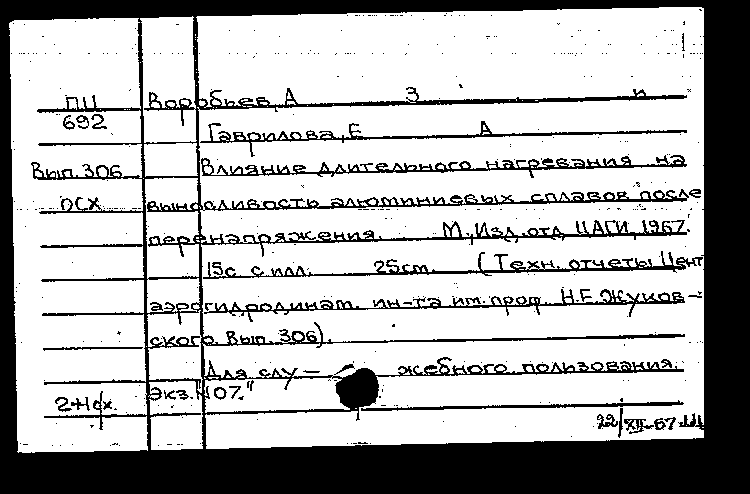 ПЦ Воробьев, А З и
692
Гаврилова, Е А
Вып. 306 Влияние длительного нагревания на
ОСХ выносливость алюминиевых сплавов после
перенапряжения. М., Изд. отд. ЦАГИ, 1967.
15с с илл. 25см. (Техн. отчеты Цент
аэрогидродинам. ин-та им. проф. Н.Е. Жуков-
ского. Вып. 306).
Для слу- жебного пользования.
2+1сх. Экз. "107."
22/XII-67